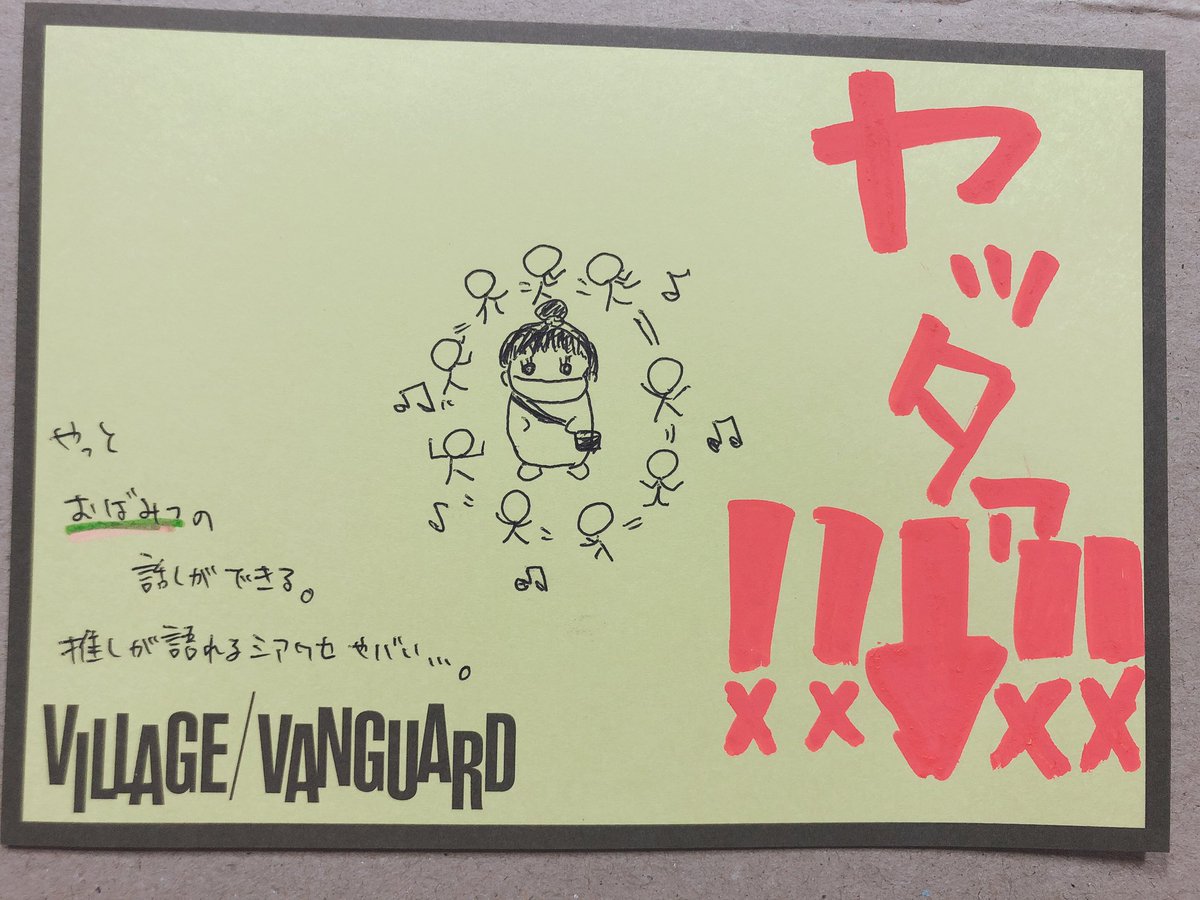 ヤッタァ
!!↓!!
やっと
おばみつの
話しができる。
推しが語れるシアワセヤバい…。
VILLAGE/VANGUARD